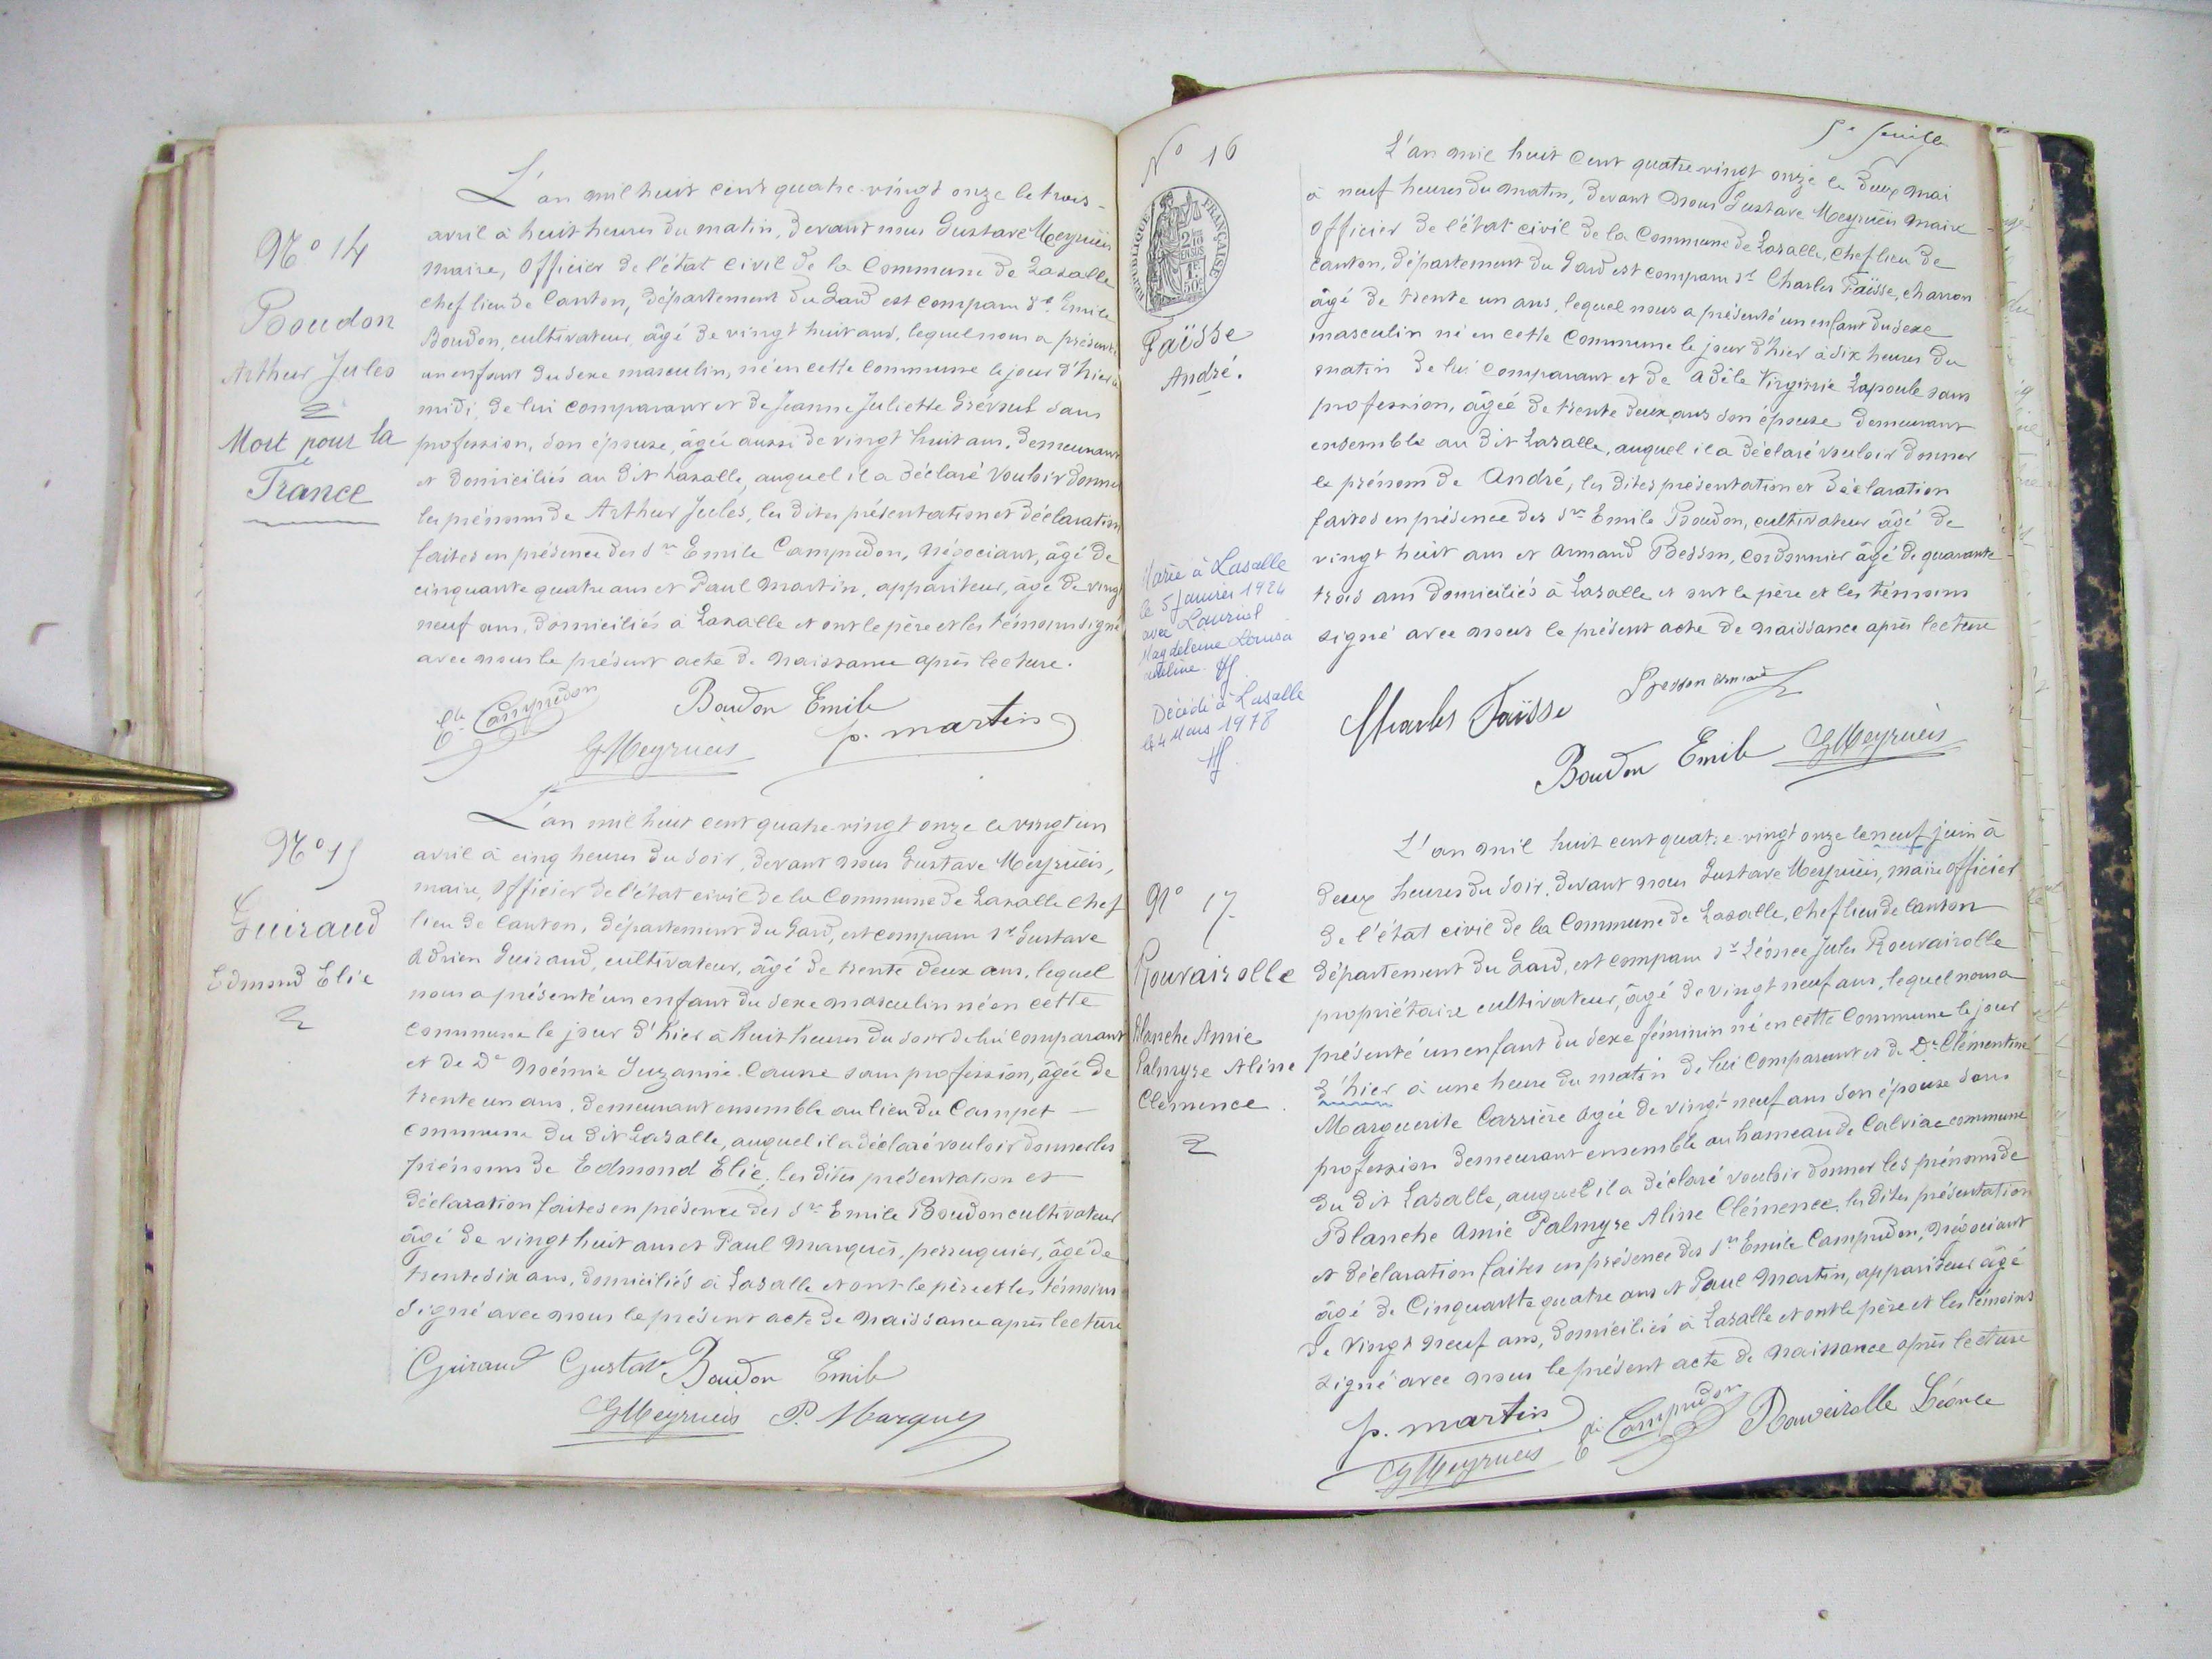 N° 14
Boudon
Arthur Jules
Mort pour la
France
L'an mil huit cent quatre-vingt onze le trois
avril à huit heures du matin, devant nous Gustave Meyrueis
maire, Officier de l'état civil de la Commune de Lasalle
chef lieu de Canton, département du Gard est comparu Sr Emile
Boudon, cultivateur, âgé de vingt huit ans, lequel nous a présenté
un enfant du sexe masculin, né en cette Commune le jour d'hier à
midi, de lui comparant et de Jeanne Juliette sans
profession, son épouse, âgée aussi de vingt huit ans, demeurant
et domiciliés au dit Lasalle, auquel il a déclaré vouloir donner
les prénoms de Arthur Jules, les dites présentation et déclaration
faites en présence des Srs Emile Campredon, négociant, âgé de
cinquante quatre ans et Paul Martin, appariteur, âgé de vingt
neuf ans, domiciliés à Lasalle et ont le père et les témoins signé
avec nous le présent acte de naissance après lecture.
Ele Campredon
Boudon Emile
GMeyrueis
p. martin
N° 15
Guiraud
Edmond Elie
L'an mil huit cent quatre-vingt onze le vingt un
avril à cinq heures du soir, devant nous Gustave Meyrueis,
maire, Officier de l'état civil de la Commune de Lasalle chef
lieu de Canton, département du Gard, est comparu Sr Gustave
Adrien Guiraud, cultivateur, âgé de trente deux ans, lequel
nous a présenté un enfant du sexe masculin né en cette
Commune le jour d'hier à huit heures du soir de lui comparant
et de De Noémie Suzanne Causse sans profession, âgée de
trente un ans, demeurant ensemble au lieu du Campet
commune du dit Lasalle, auquel il a déclaré vouloir donner les
prénoms de Edmond Elie, les dites présentation et
déclaration faites en présence des Srs Emile Boudon cultivateur
âgé de vingt huit ans et Paul Marquès, perruquier, âgé de
trente six ans, domiciliés à Lasalle et ont le père et les témoins
signé avec nous le présent acte de naissance après lecture
Guiraud Gustave Boudon Emile
GMeyrueis P. Marques
5e feuille
N° 16
RÉPUBLIQUE FRANÇAISE
2/10 EN SUS
1F 50C
Faïsse
André.
Marié à Lasalle
le 5 janvier 1924
avec Lauriol
Magdeleine Louisa
Adeline
Décédé à Lasalle
le 4 Mars 1978
L'an mil huit cent quatre vingt onze le deux mai
à neuf heures du matin, devant nous Gustave Meyrueis maire
Officier de l'état civil de la Commune de Lasalle, Chef lieu de
canton, département du Gard est comparu Sr Charles Faïsse, charron
âgé de trente un ans, lequel nous a présenté un enfant du sexe
masculin né en cette Commune le jour d'hier à six heures du
matin de lui comparant et de Adèle Virginie Lapoule sans
profession, âgée de trente deux ans son épouse demeurant
ensemble au dit Lasalle, auquel il a déclaré vouloir donner
le prénom de André, les dites présentation et déclaration
faites en présence des Srs Emile Boudon, cultivateur âgé de
vingt huit ans et Armand Besson, cordonnier âgé de quarante
trois ans domiciliés à Lasalle et ont le père et les témoins
signé avec nous le présent acte de naissance après lecture
Charles Faïsse
Besson Armand
Boudon Emile GMeyrueis
N° 17
Rouvairolle
Blanche Amie
Palmyre Aline
Clémence
L'an mil huit cent quatre-vingt onze le neuf juin à
deux heures du soir, devant nous Gustave Meyrueis, maire officier
de l'état civil de la Commune de Lasalle, chef lieu de Canton
département du Gard, est comparu Sr Léonce Jules Rouvairolle
propriétaire cultivateur, âgé de vingt neuf ans, lequel nous a
présenté un enfant du sexe féminin né en cette Commune le jour
d'hier à une heure du matin de lui comparant et de De Clémentine
Marguerite Carrière âgée de vingt neuf ans son épouse sans
profession demeurant ensemble au hameau de Calviac commune
du dit Lasalle, auquel il a déclaré vouloir donner les prénoms de
Blanche Amie Palmyre Aline Clémence, les dites présentation
et déclaration faites en présence des Srs Emile Campredon, négociant
âgé de Cinquante quatre ans et Paul Martin, appariteur âgé
de vingt neuf ans, domiciliés à Lasalle et ont le père et les témoins
signé avec nous le présent acte de naissance après lecture
p. martin Ele Campredon Rouvairolle Léonce
GMeyrueis